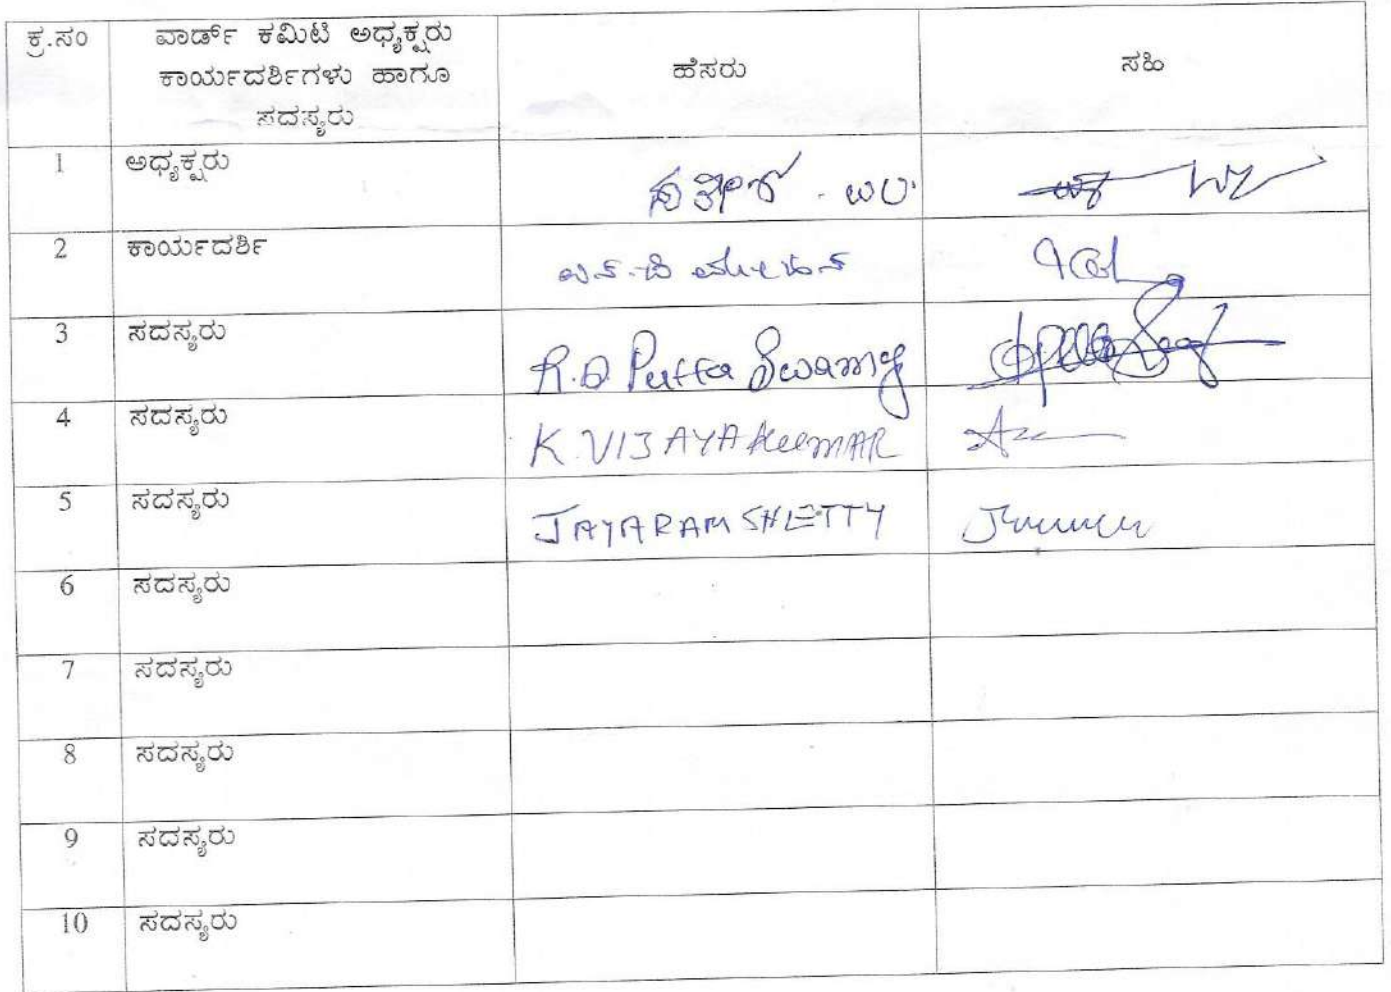 ಕ್ರ.ಸಂ ವಾರ್ಡ್ ಕಮಿಟಿ ಅಧ್ಯಕ್ಷರು ಹೆಸರು ಸಹಿ
ಕಾರ್ಯದರ್ಶಿಗಳು ಹಾಗೂ
ಸದಸ್ಯರು
1 ಅಧ್ಯಕ್ಷರು
2 ಕಾರ್ಯದರ್ಶಿ
3 ಸದಸ್ಯರು R.D. Putta Swamy
4 ಸದಸ್ಯರು K. VIJAYA KUMAR
5 ಸದಸ್ಯರು JAYARAM SHETTY
6 ಸದಸ್ಯರು
7 ಸದಸ್ಯರು
8 ಸದಸ್ಯರು
9 ಸದಸ್ಯರು
10 ಸದಸ್ಯರು